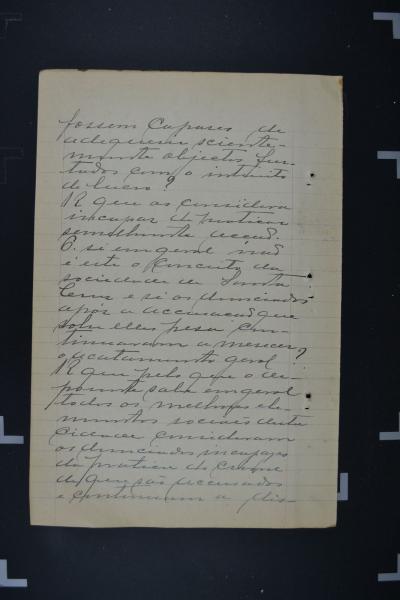 fossem capazes de
adequerir sciente-
mente objectos fur-
tados com o intuito
de lucro?
R que os considera
incapaz de praticar
semelhante acção.
P. si em geral não
é este o conceito da
sociedade de Santa
Cruz e si os denunciados
após a accusação que
sobre elles pesa con-
tinuaram a merecer
o acatamento geral?
R que pelo que o de-
poente sabe em geral
todos os melhores ele-
mentos sociaes desta
cidade consideram
os denunciados incapazes
da pratica do crime
de que são accusados
e continuam a dis-